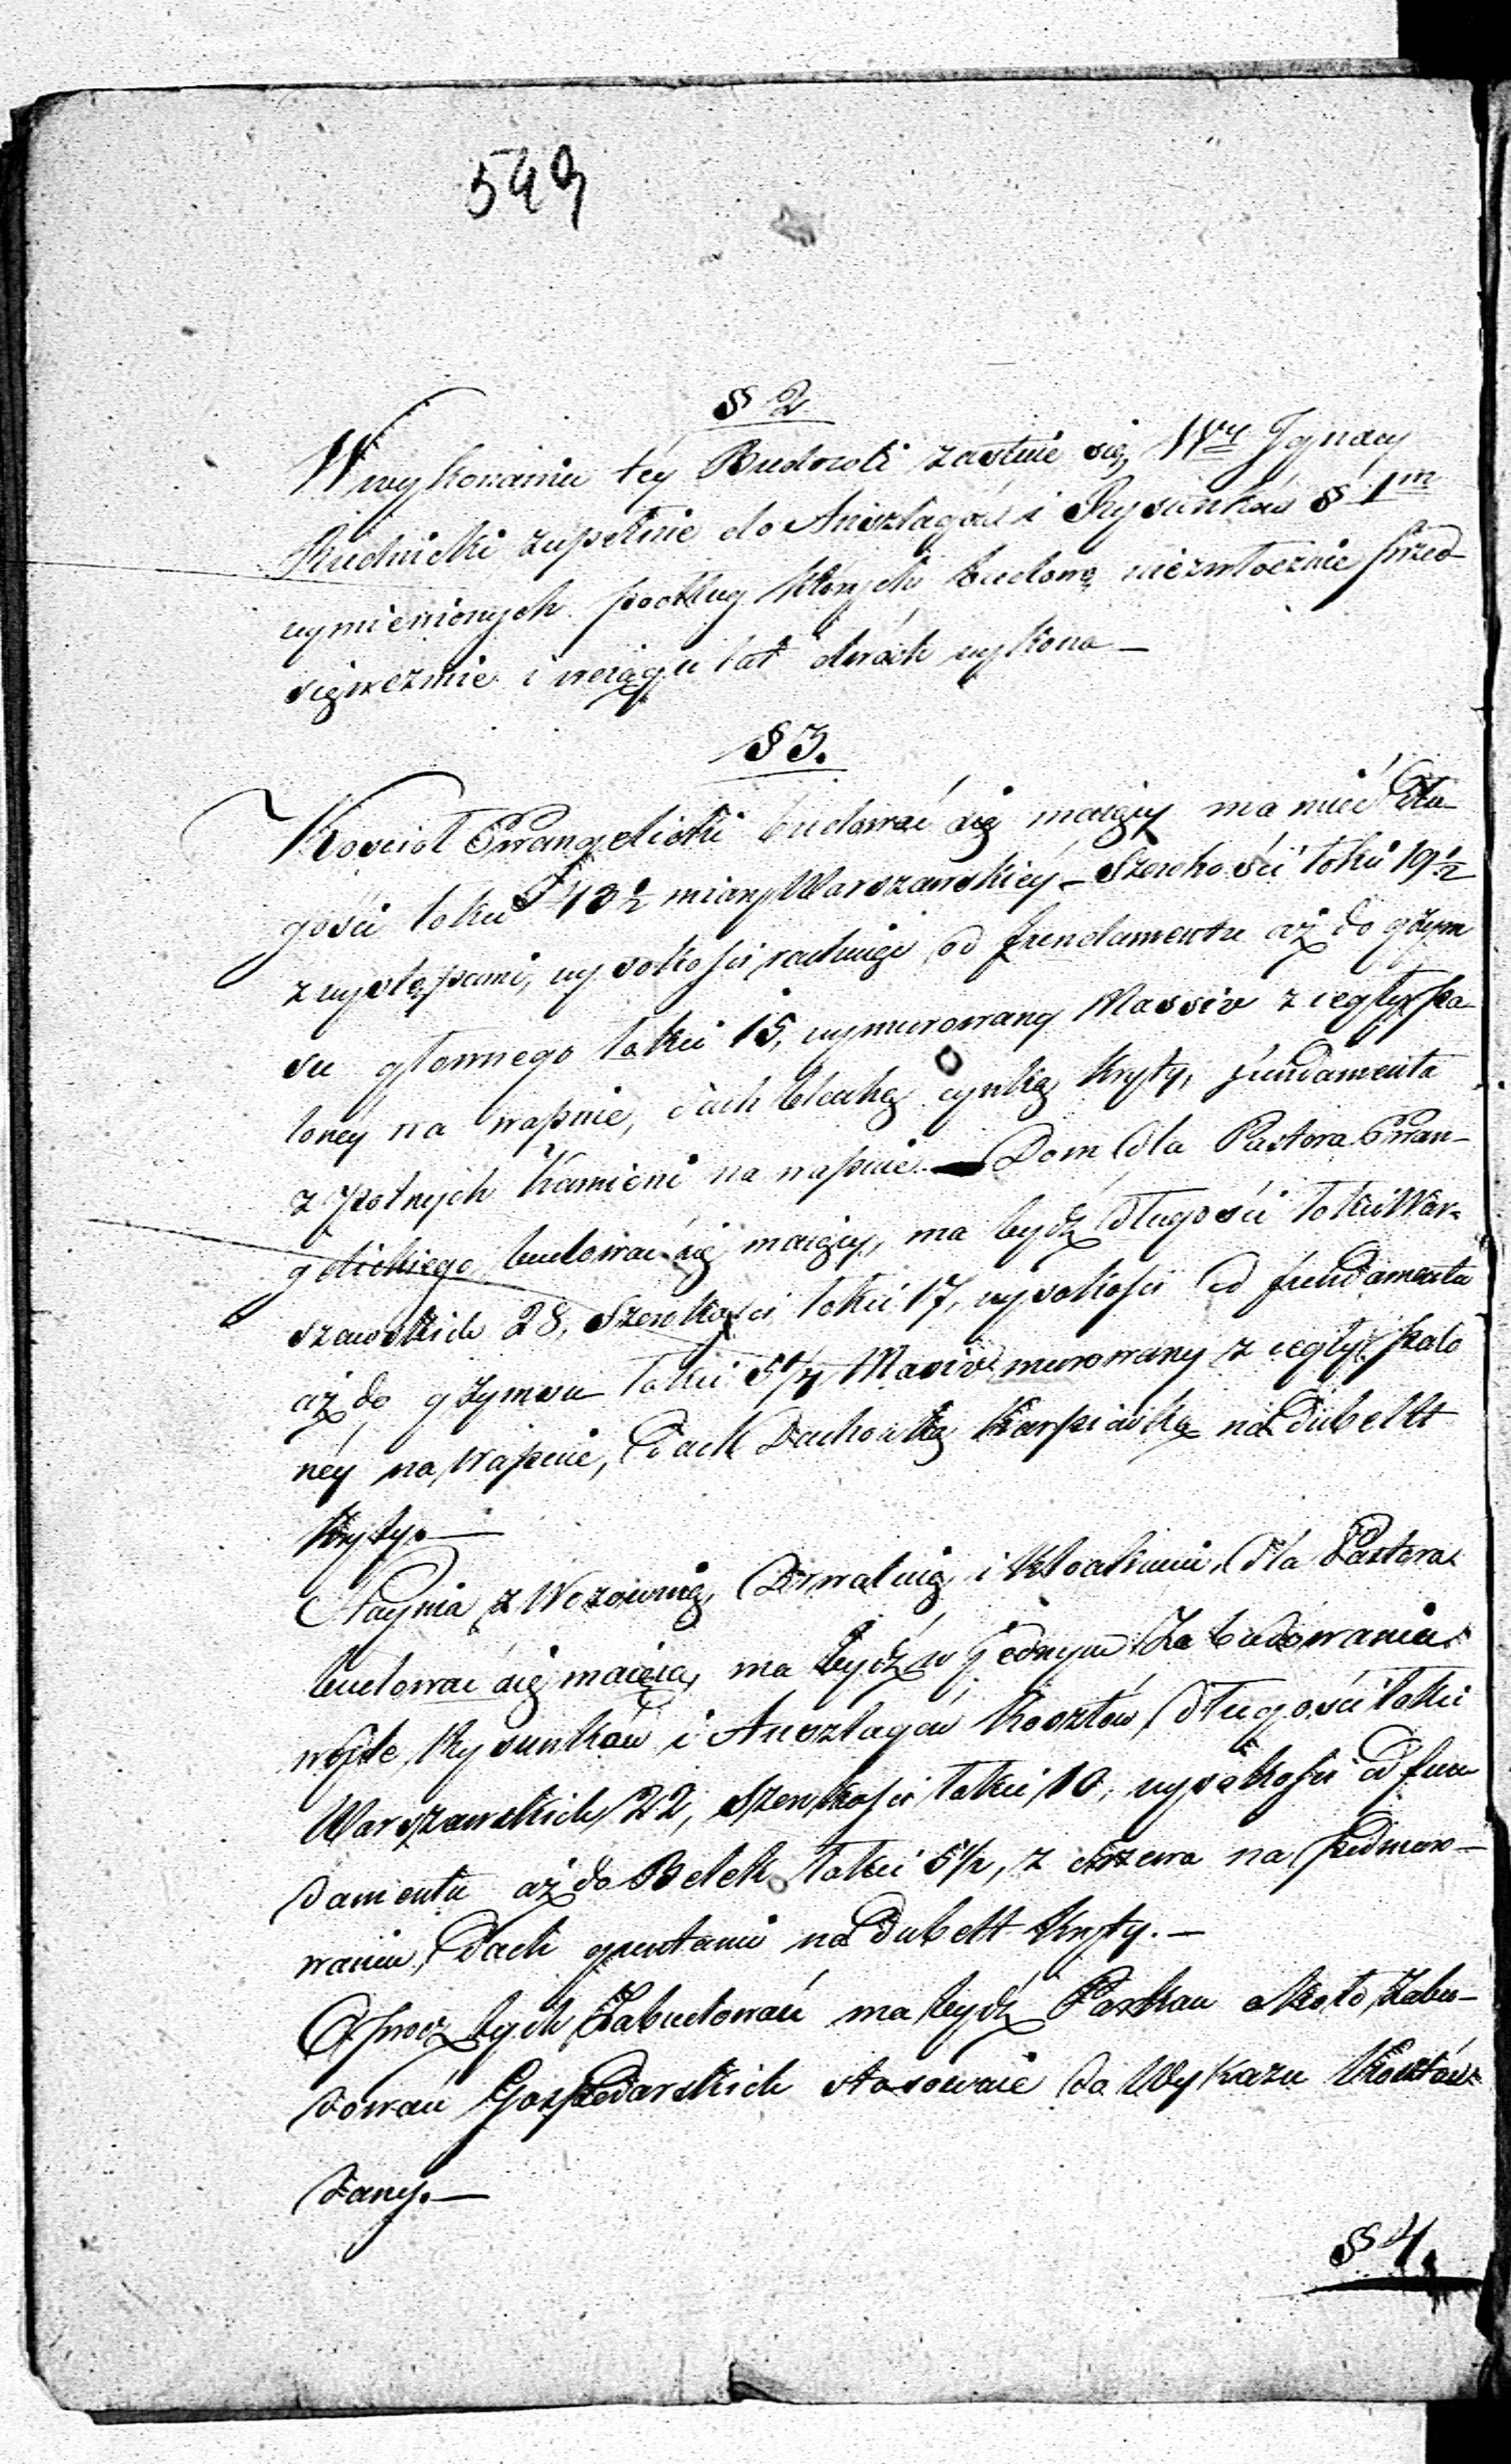 549
§ 2
W wykonaniu téy Budowli zastosuie się Wny Ignacy
zupełnie do Anszlagów i Rysunków § 1m
wymienionych podług których budowę niezwłocznie przed
sięweźmie i wciągu lat dwóch wykona —
§ 3.
Kościoł Ewangelicki budować się maiący ma mieć dłu-
gości łokci 43½ miary Warszawskiéy – Szerokości łokci 19½
z występami, wysokości rachuiąc od fundamentu aż do gzym
su głownego łokci 15, wymurowany Massiv z cegły pa-
loney na wapnie, dach blachą cynką kryty, fundamenta
z polnych kamieni na wapnie. — Dom dla Pastora Ewan-
gelickiego budować się maiący, ma bydź długości łokci War-
szawskich 28, Szerokości łokci 17, wysokości od fundamentu
aż do gzymsu łokci Masiv murowany z cegły palo
néy na wapnie, dach Dachówką Karpiówką na dubelt
kryty. —
Staynia z Wozownią, Drwalnią i kloakami, dla Pastora
budować się maiąca, ma bydź w jednym Zabudowaniu
Rysunków i Anszlagów kosztów, długości łokci
Warszawskich 22, Szerokości łokci 10, wysokości od fun
damentu aż do Belek łokci 5½, z drzewa na podmuro-
waniu, dach gontami na dubelt kryty. —
Oprocz tych Zabudowań ma bydź Parkan około Zabu-
dowań Gospodarskich stosownie do Wykazu kosztów
dany. —
§ 4.